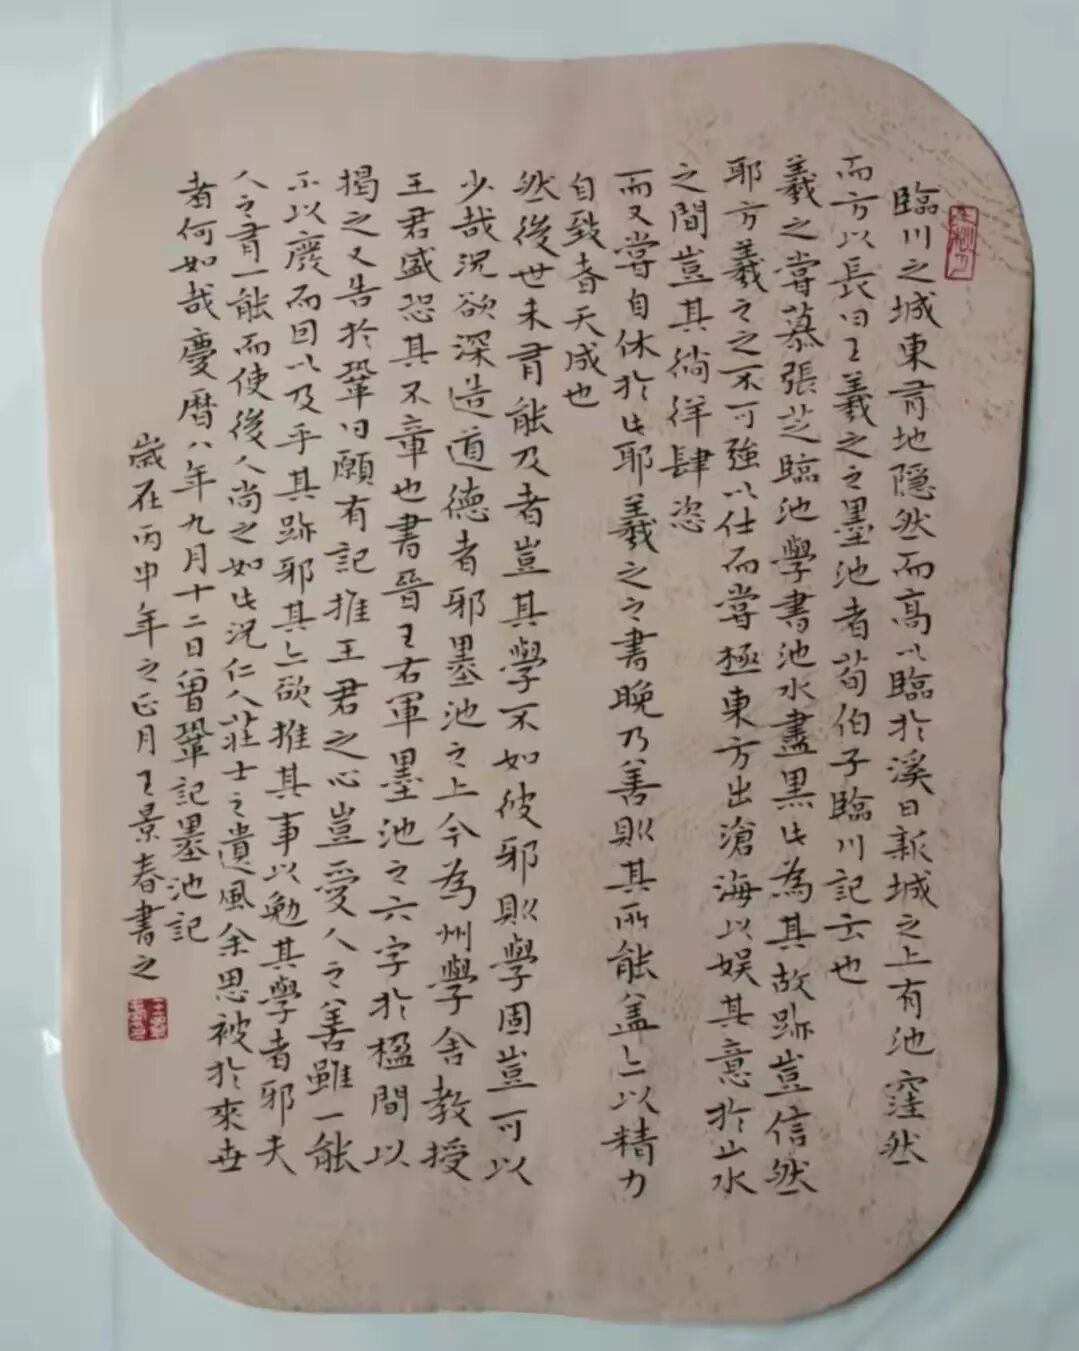 臨川之城東有地隱然而高以臨於溪曰新城之上有池窪然
而方以長曰王羲之之墨池者荀伯子臨川記云也
羲之嘗慕張芝臨池學書池水盡黑此為其故跡豈信然
耶方羲之之不可強以仕而嘗極東方出滄海以娱其意於山水
之間豈其徜徉肆恣
而又嘗自休於此耶羲之之書晚乃善則其所能盖亦以精力
自致者天成也
然後世未有能及者豈其學不如彼邪則學固豈可以
少哉況欲深造道德者邪墨池之上今為州學舍教授
王君盛恐其不章也書晉王右軍墨池之六字於楹間以
揭之又告於鞏曰願有記推王君之心豈愛人之善雖一能
不以廢而因以及乎其跡邪其亦欲推其事以勉其學者邪夫
人之有一能而使後人尚之如此況仁人莊士之遺風余思被於來世
者何如哉慶曆八年九月十二日曾鞏記墨池記
歲在丙申年之正月王景春書之